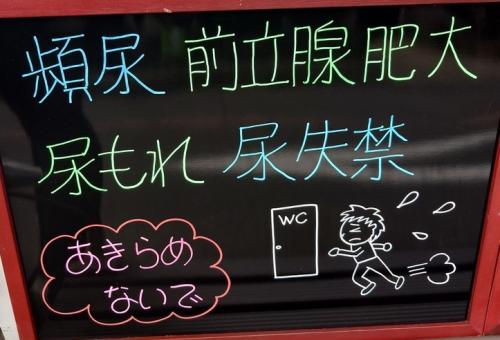 頻尿 前立腺肥大
尿もれ 尿失禁
WC
あきらめ
ないで